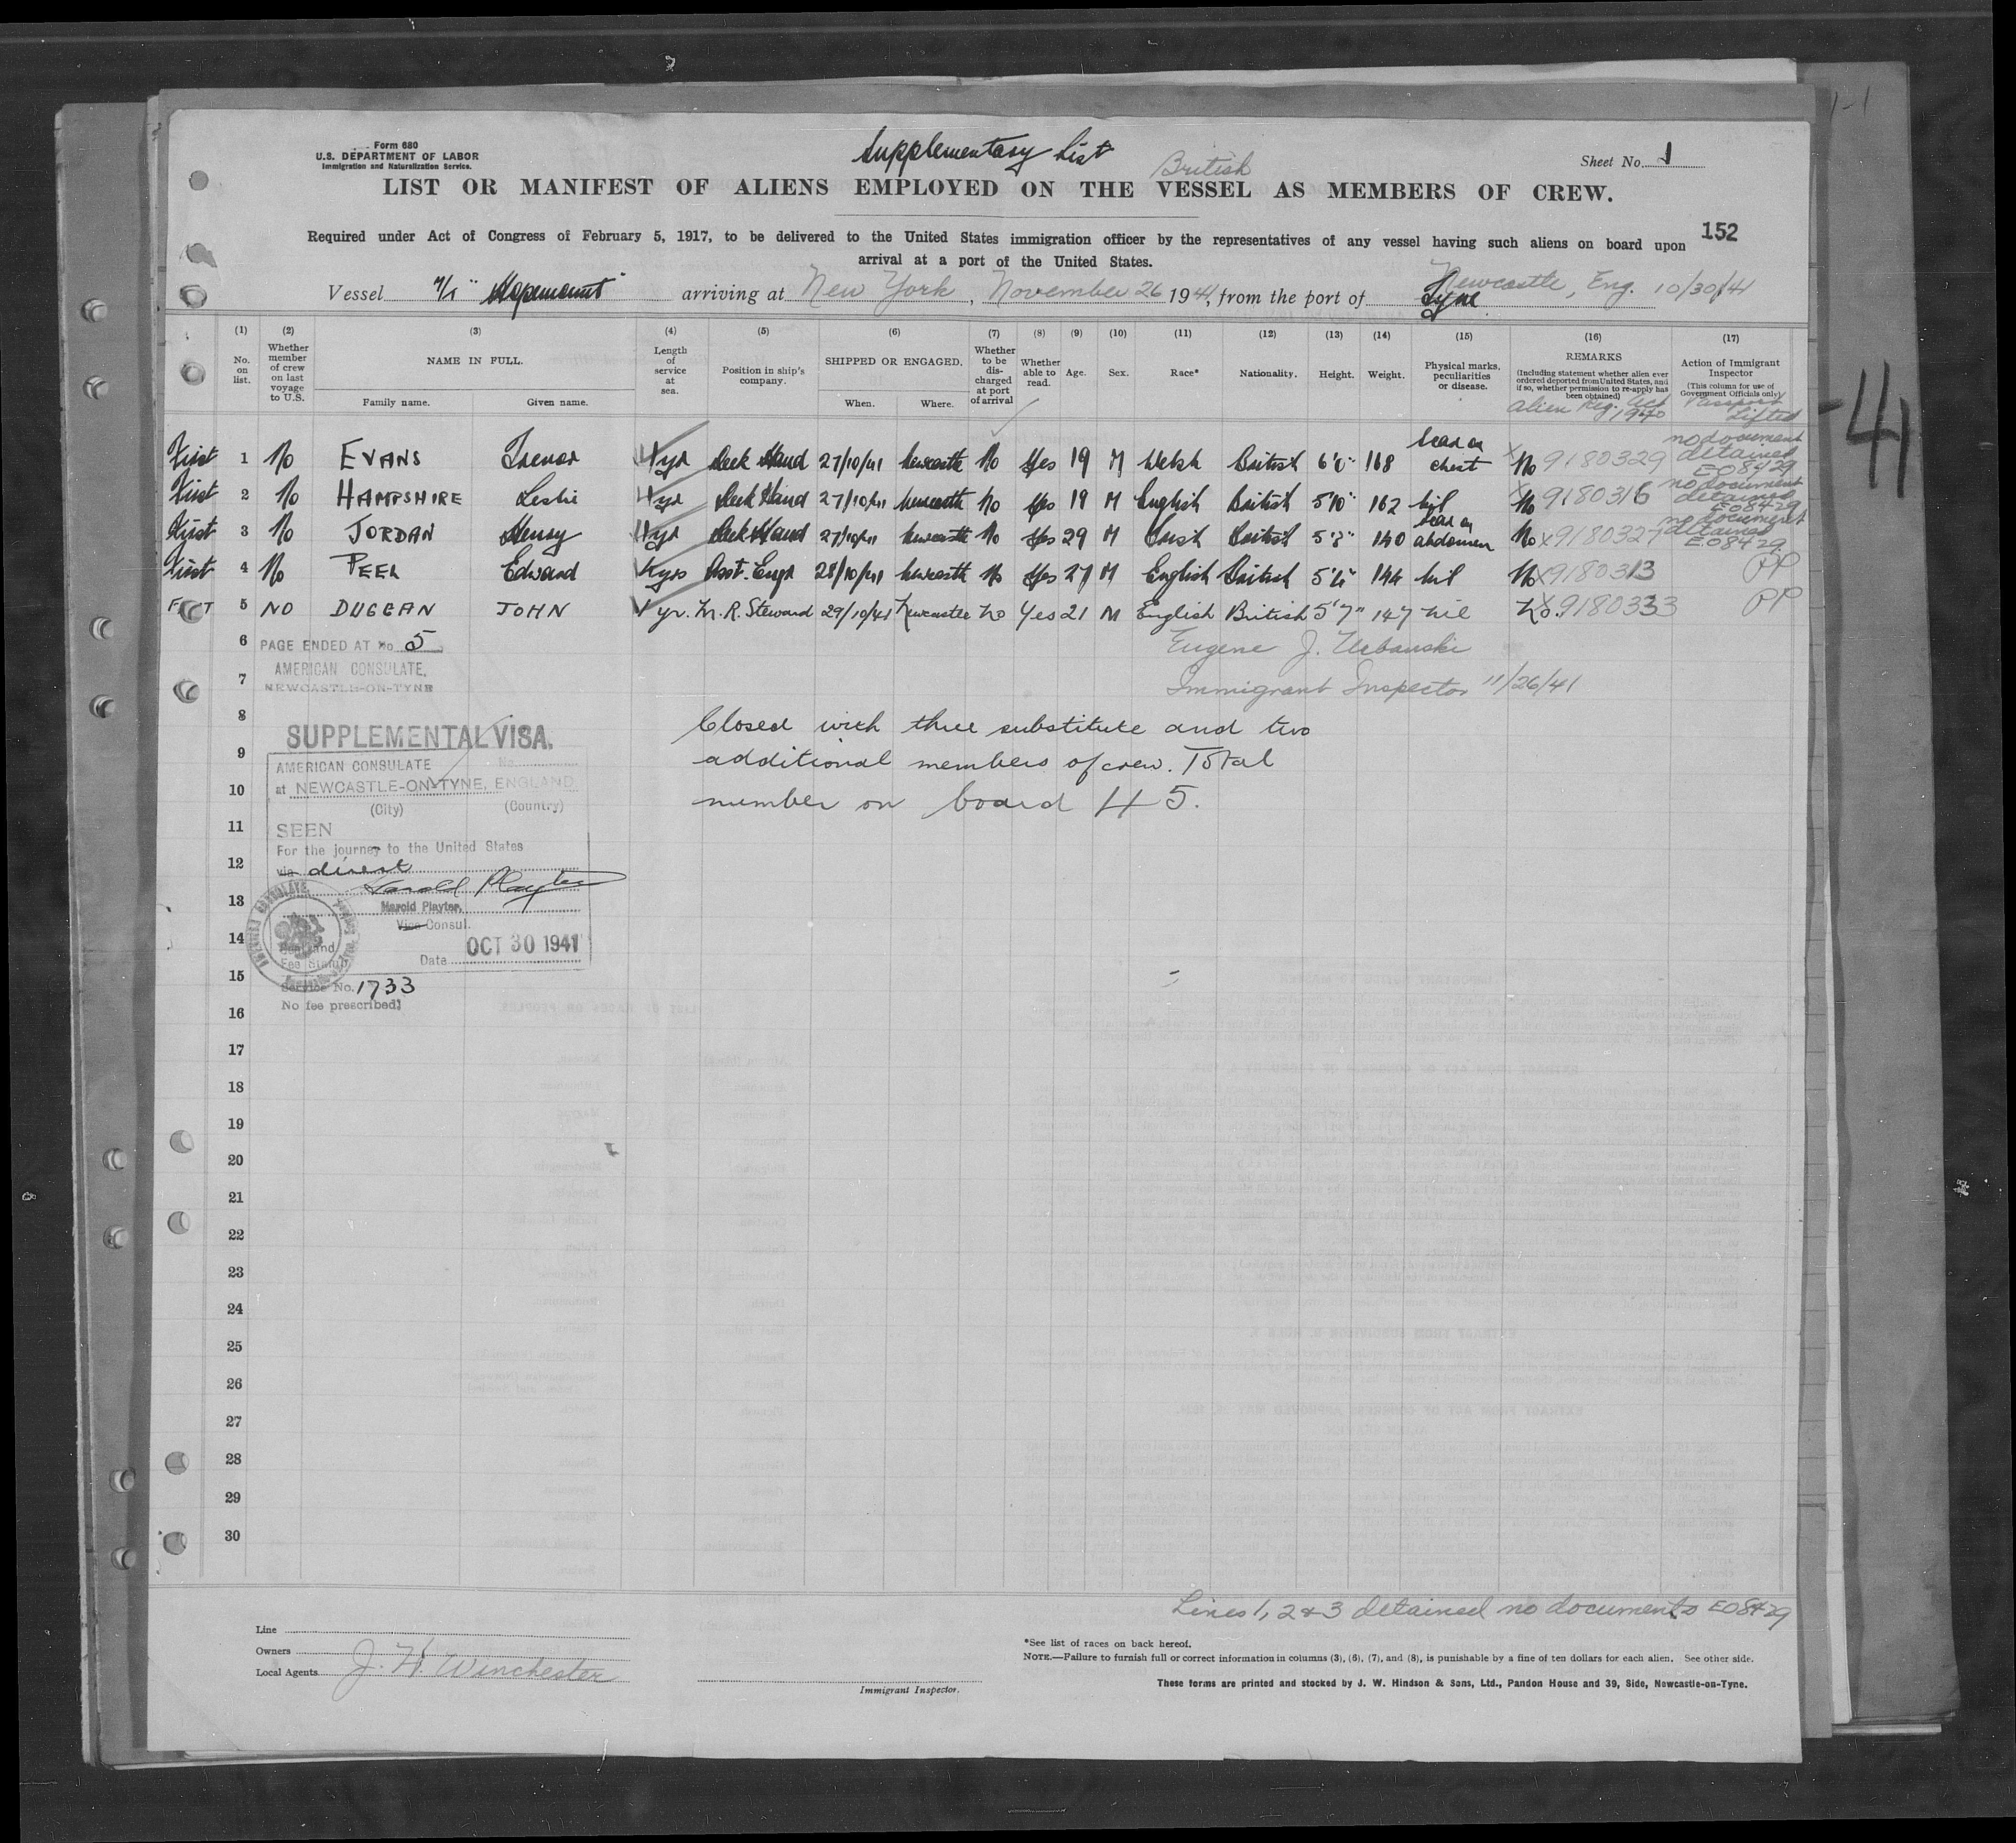 Supplementary List
Form 680
U.S. DEPARTMENT OF LABOR
Immigration and Naturalization Service.
British
Sheet No. 1
LIST OR MANIFEST OF ALIENS EMPLOYED ON THE VESSEL AS MEMBERS OF CREW.
152
Required under Act of Congress of February 5, 1917, to be delivered to the United States immigration officer by the representatives of any vessel having such aliens on board upon
arrival at a port of the United States.
Vessel "Hopemount" arriving at New York, November 26 1941, from the port of Tyne Newcastle, Eng. 10/30/41
(1) (2) (3) (4) (5) (6) (7) (8) (9) (10) (11) (12) (13) (14) (15) (16) (17)
No. on list.
Whether member of crew on last voyage to U.S.
NAME IN FULL.
Family name. Given name.
Length of service at sea.
Position in ship's company.
SHIPPED OR ENGAGED.
When. Where.
Whether to be discharged at port of arrival
Whether able to read.
Age.
Sex.
Race*
Nationality.
Height.
Weight.
Physical marks, peculiarities or disease.
REMARKS
(Including statement whether alien ever ordered deported from United States, and if so, whether permission to re-apply has been obtained)
Alien Reg. Act 1940
Action of Immigrant Inspector
(This column for use of Government Officials only)
Passport Lifted
First 1 No EVANS Trevor yr Deck Hand 27/10/41 Newcastle No Yes 19 M Welsh British 6'0" 168 Scar on chest No x 9180329 no document detained EO8429
First 2 No HAMPSHIRE Leslie yr Deck Hand 27/10/41 Newcastle No Yes 19 M English British 5'10" 162 nil No x 9180316 no document detained EO8429
First 3 No JORDAN Henry yr Deck Hand 27/10/41 Newcastle No Yes 29 M Irish British 5'8" 140 Scar on abdomen No x 9180327 no document detained EO8429
First 4 No PEEL Edward yrs Asst. Engr 28/10/41 Newcastle No Yes 27 M English British 144 nil No x 9180313 PP
5 NO DUGGAN JOHN yr. M.R. Steward 29/10/41 Newcastle No Yes 21 M English British 5'7" 147 nil No. x 9180333 PP
6 PAGE ENDED AT No 5
Eugene J. Urbanski
AMERICAN CONSULATE,
7
NEWCASTLE-ON-TYNE
Immigrant Inspector 11/26/41
8
Closed with three substitute and two
SUPPLEMENTAL VISA.
9
additional members of crew. Total
AMERICAN CONSULATE No.
at NEWCASTLE-ON-TYNE, ENGLAND
10
number on board 45.
(City) (Country)
11
SEEN
For the journey to the United States
12
via direct
Harold Playter
13
Harold Playter,
Vice Consul.
14
Seal and
Fee Stamp
Date OCT 30 1941
15
Service No. 1733
No fee prescribed
16
17
18
19
20
21
22
23
24
25
26
27
28
29
30
Lines 1, 2 & 3 detained no documents EO8429
Line
Owners
Local Agents J. H. Winchester
Immigrant Inspector.
*See list of races on back hereof.
NOTE.—Failure to furnish full or correct information in columns (3), (6), (7), and (8), is punishable by a fine of ten dollars for each alien. See other side.
These forms are printed and stocked by J. W. Hindson & Sons, Ltd., Pandon House and 39, Side, Newcastle-on-Tyne.
-41